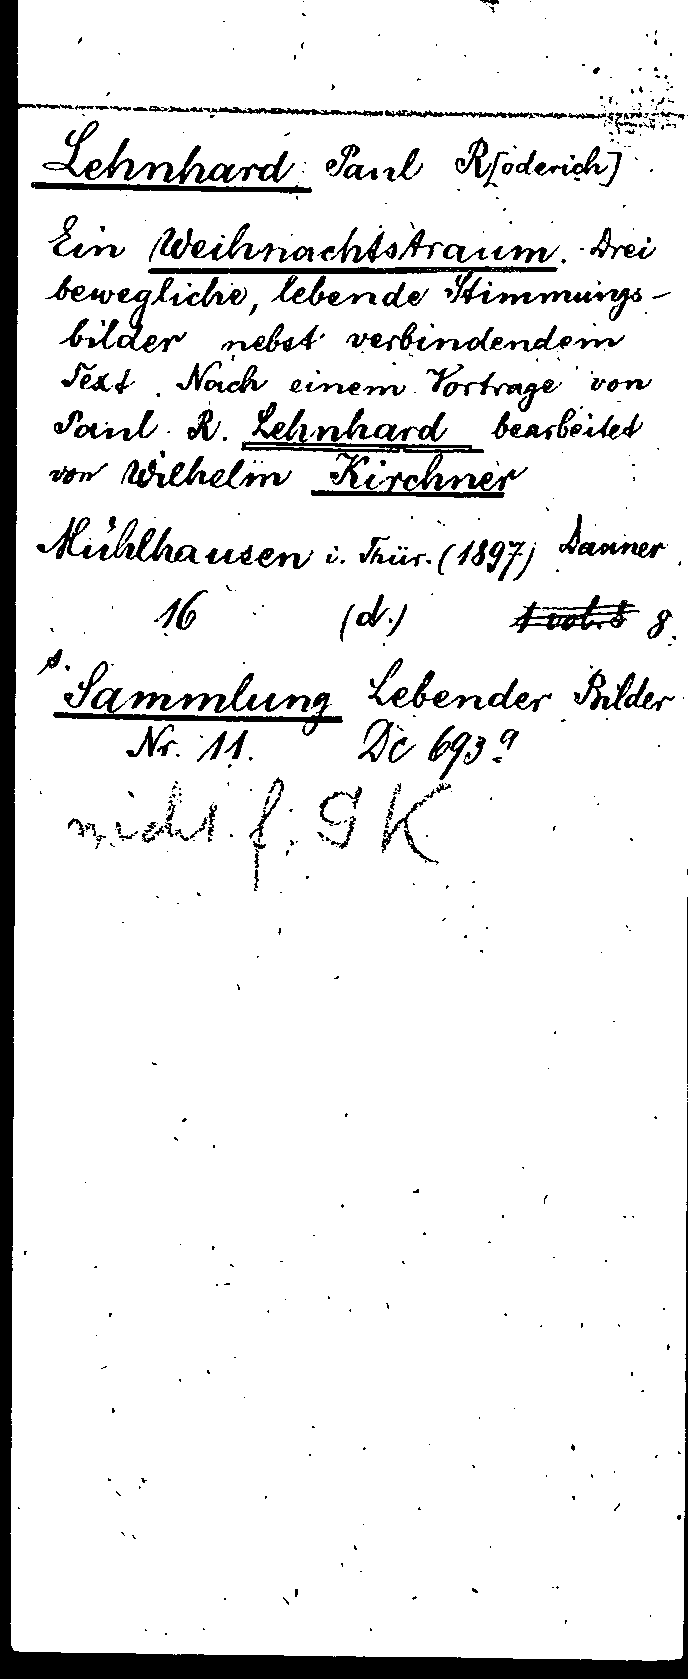 Lehnhard Paul R[oderich]
Ein Weihnachtstraum. Drei
bewegliche, lebende Stimmungs-
bilder nebst verbindendem
Text. Nach einem Vortrage von
Paul R. Lehnhard bearbeitet
von Wilhelm Kirchner
Mühlhausen i. Thür. (1897) Danner
16 (d.) 8.
s.
Sammlung Lebender Bilder
Nr. 11. Dc 693
nicht f. GK